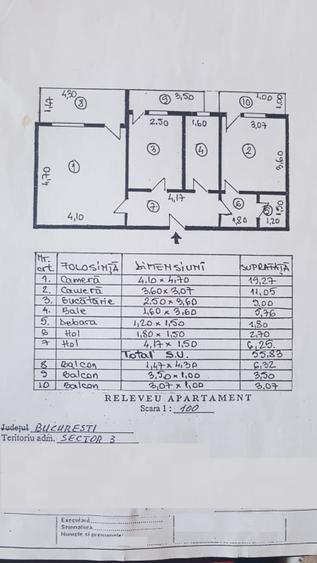 4,30 8 1,47
9 3,50
10 1,00 1,00
2.50
1,60
3,07
4,70 1
3
4
2 3,60
4,17
7
6
5 1,50
4,10
1,80
1,20
Nr. crt. FOLOSINȚĂ DIMENSIUNI SUPRAFAȚĂ
1. Cameră 4.10 x 4.70 19,27
2. Cameră 3.60 x 3,07 11,05
3. Bucătărie 2.50 x 3,60 9,00
4. Baie 1,60 x 3,60 5,76
5. Debara 1,20 x 1,50 1,80
6 Hol 1,80 x 1,50 2.70
7 Hol 4,17 x 1,50 6,25.
Total S.U. 55.83
8 Balcon 1,47 x 4.30 6,32
9 Balcon 3,50 x 1,00 3,50
10 Balcon 3,07 x 1,00 3,07
RELEVEU APARTAMENT
Scara 1 : 100
Județul BUCUREȘTI
Teritoriu adm. SECTOR 3
Executat
Semnatura
Numele si prenumele